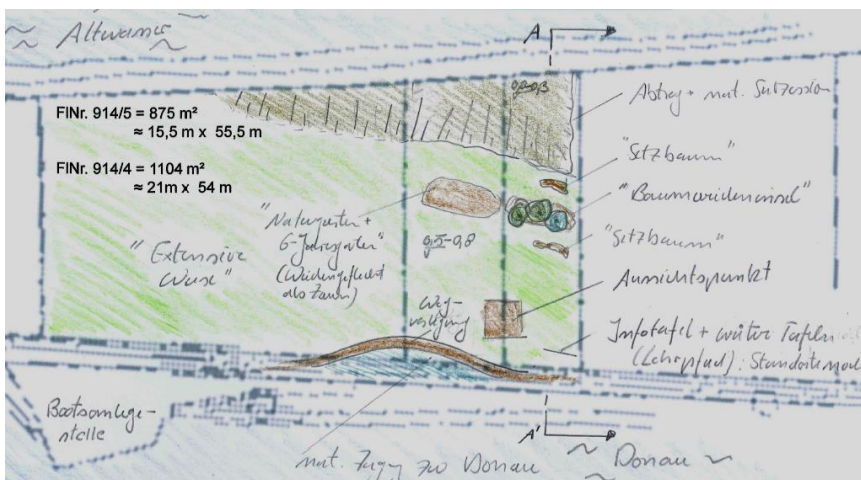 Altwasser
A
0,2-0,3
Abtrag + nat. Sukzession
FlNr. 914/5 = 875 m²
≈ 15,5 m x 55,5 m
"Sitzbaum"
FlNr. 914/4 = 1104 m²
≈ 21m x 54 m
"Baumweideninsel"
"Naturgarten +
6-Jahresgarten"
(Weidengeflecht
als Zaun)
0,5-0,8
"Sitzbaum"
"Extensive
Wiese"
Aussichtspunkt
Weg-
verlegung
Infotafel + weitere Tafeln
(Lehrpfad): Standorte
Bootsanlege-
stelle
A'
nat. Zugang zur Donau
Donau